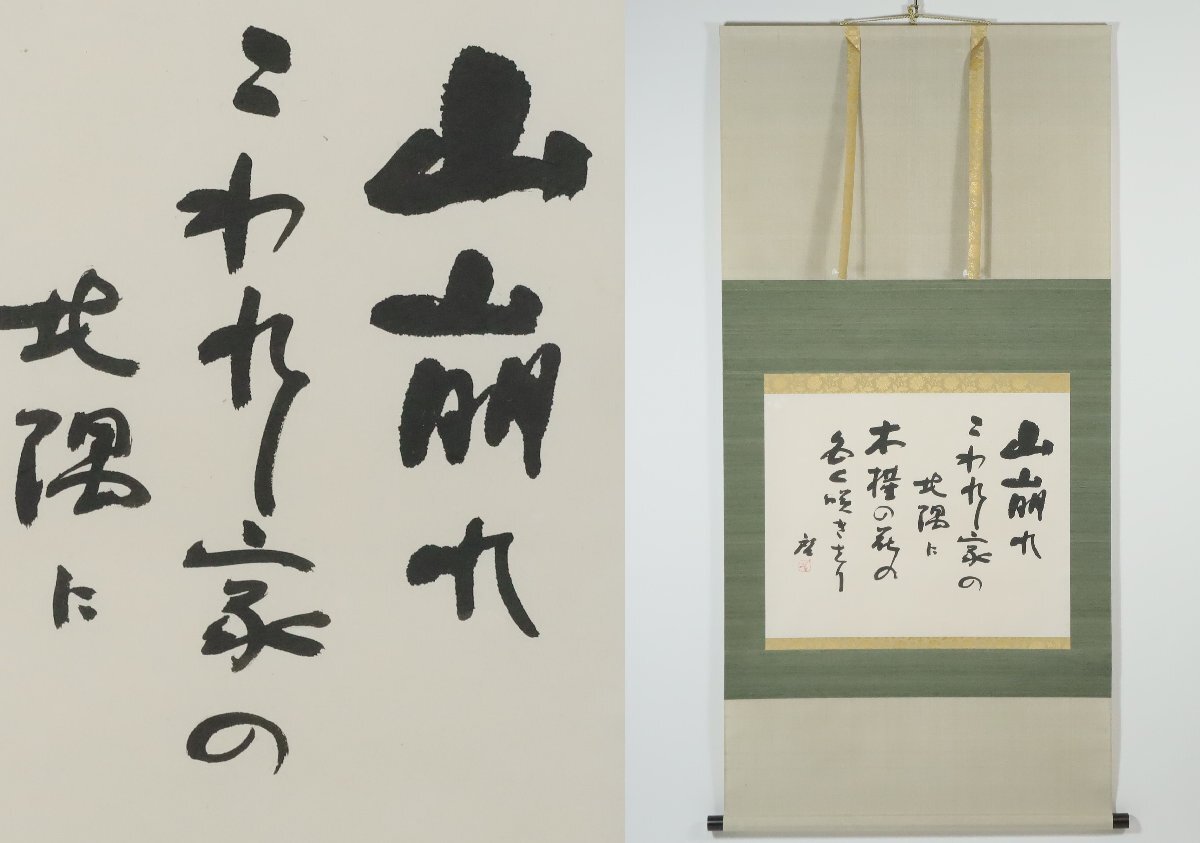 山崩れ
こわれし家の
北隅に
山崩れ
こわれし家の
北隅に
木槿の花の
白く咲きをり